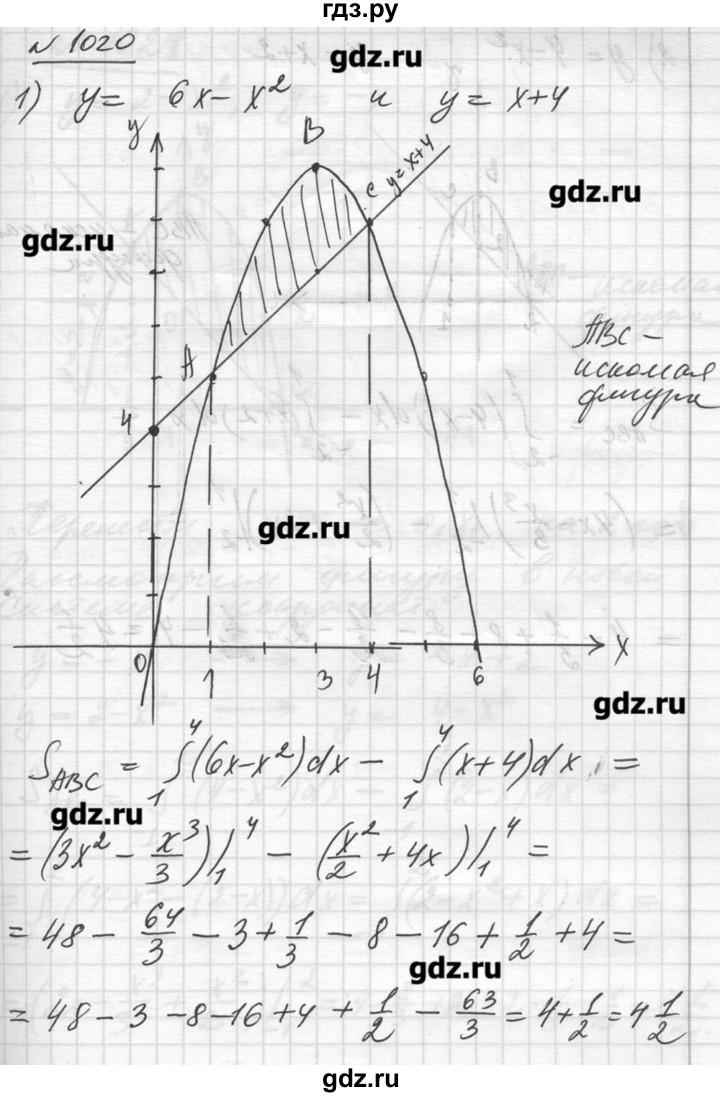 гдз.ру
№ 1020
gdz.ru
1) y = 6x - x² и y = x+4
y
B
C y = x+4
gdz.ru
gdz.ru
ABC –
искомая
фигура
A
4
gdz.ru
0 1 3 4 6 x
gdz.ru
S_ABC = ∫₁⁴(6x-x²)dx - ∫₁⁴(x+4)dx =
gdz.ru
= (3x² - x³/3)|₁⁴ - (x²/2 + 4x)|₁⁴ =
= 48 - 64/3 - 3 + 1/3 - 8 - 16 + 1/2 + 4 =
gdz.ru
= 48 - 3 - 8 - 16 + 4 + 1/2 - 63/3 = 4 + 1/2 = 4 1/2
gdz.ru